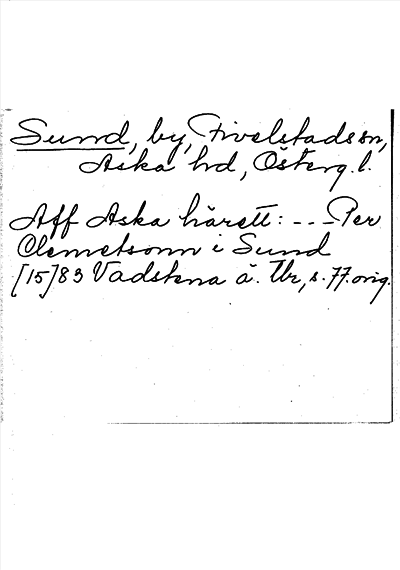 Sund, by, Fivelstads sn,
Aska hd, Österg. l.
Aff Aska härett: - - - Per
Clemetsonn i Sund
[15]83 Vadstena ä. Tbr, s. 77. orig.